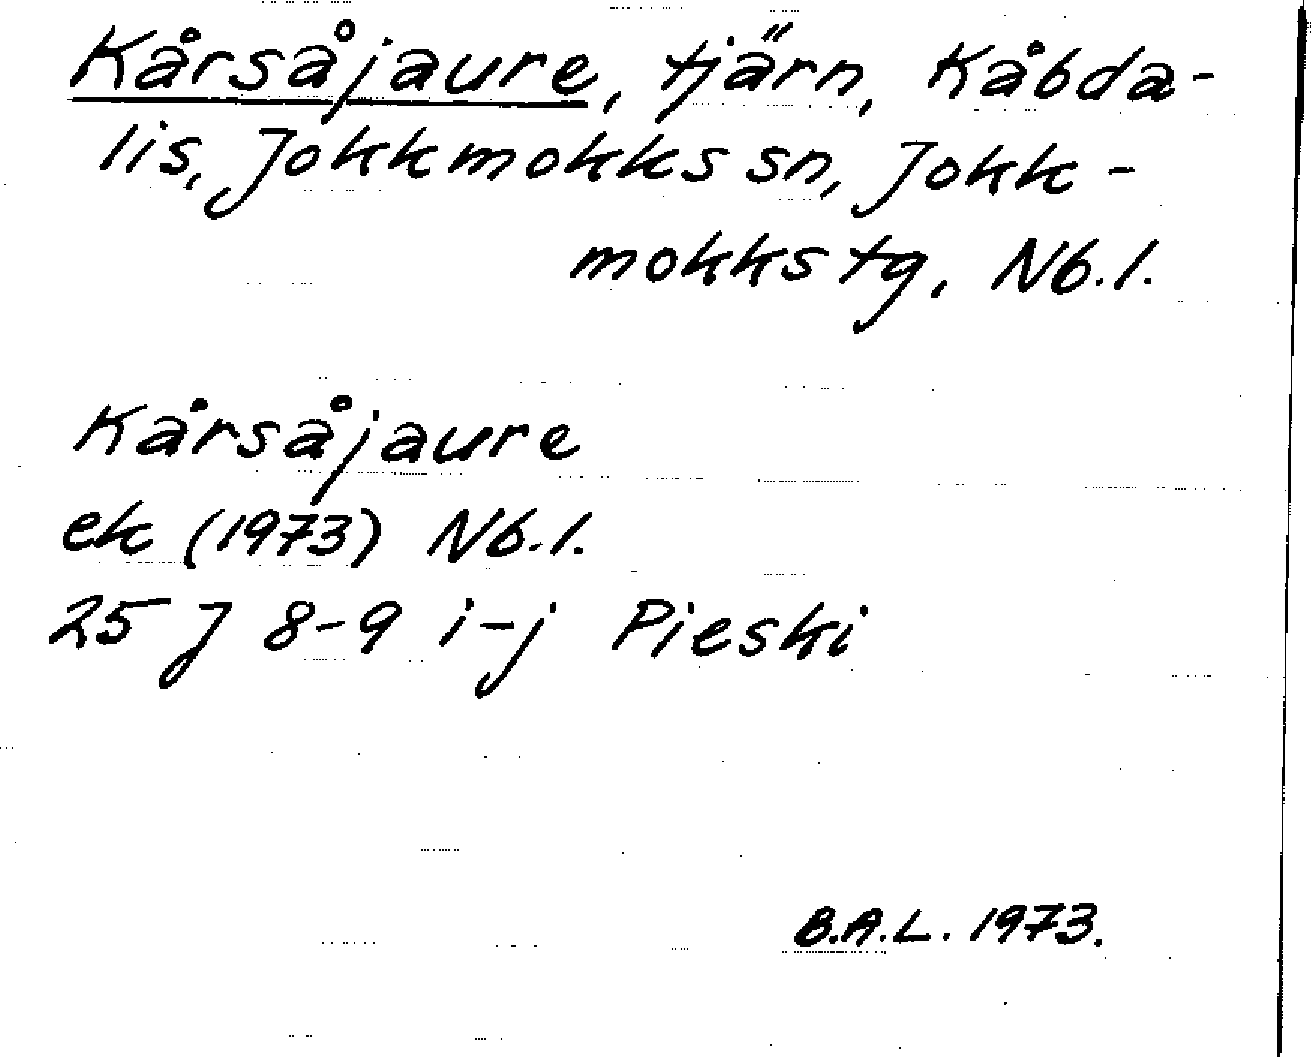 Kårsåjaure, tjärn, Kåbda-
lis, Jokkmokks sn, Jokk-
mokks tg, Nb.l.
Kårsåjaure
ek (1973) Nb.l.
25 J 8-9 i-j Pieski
B.A.L. 1973.